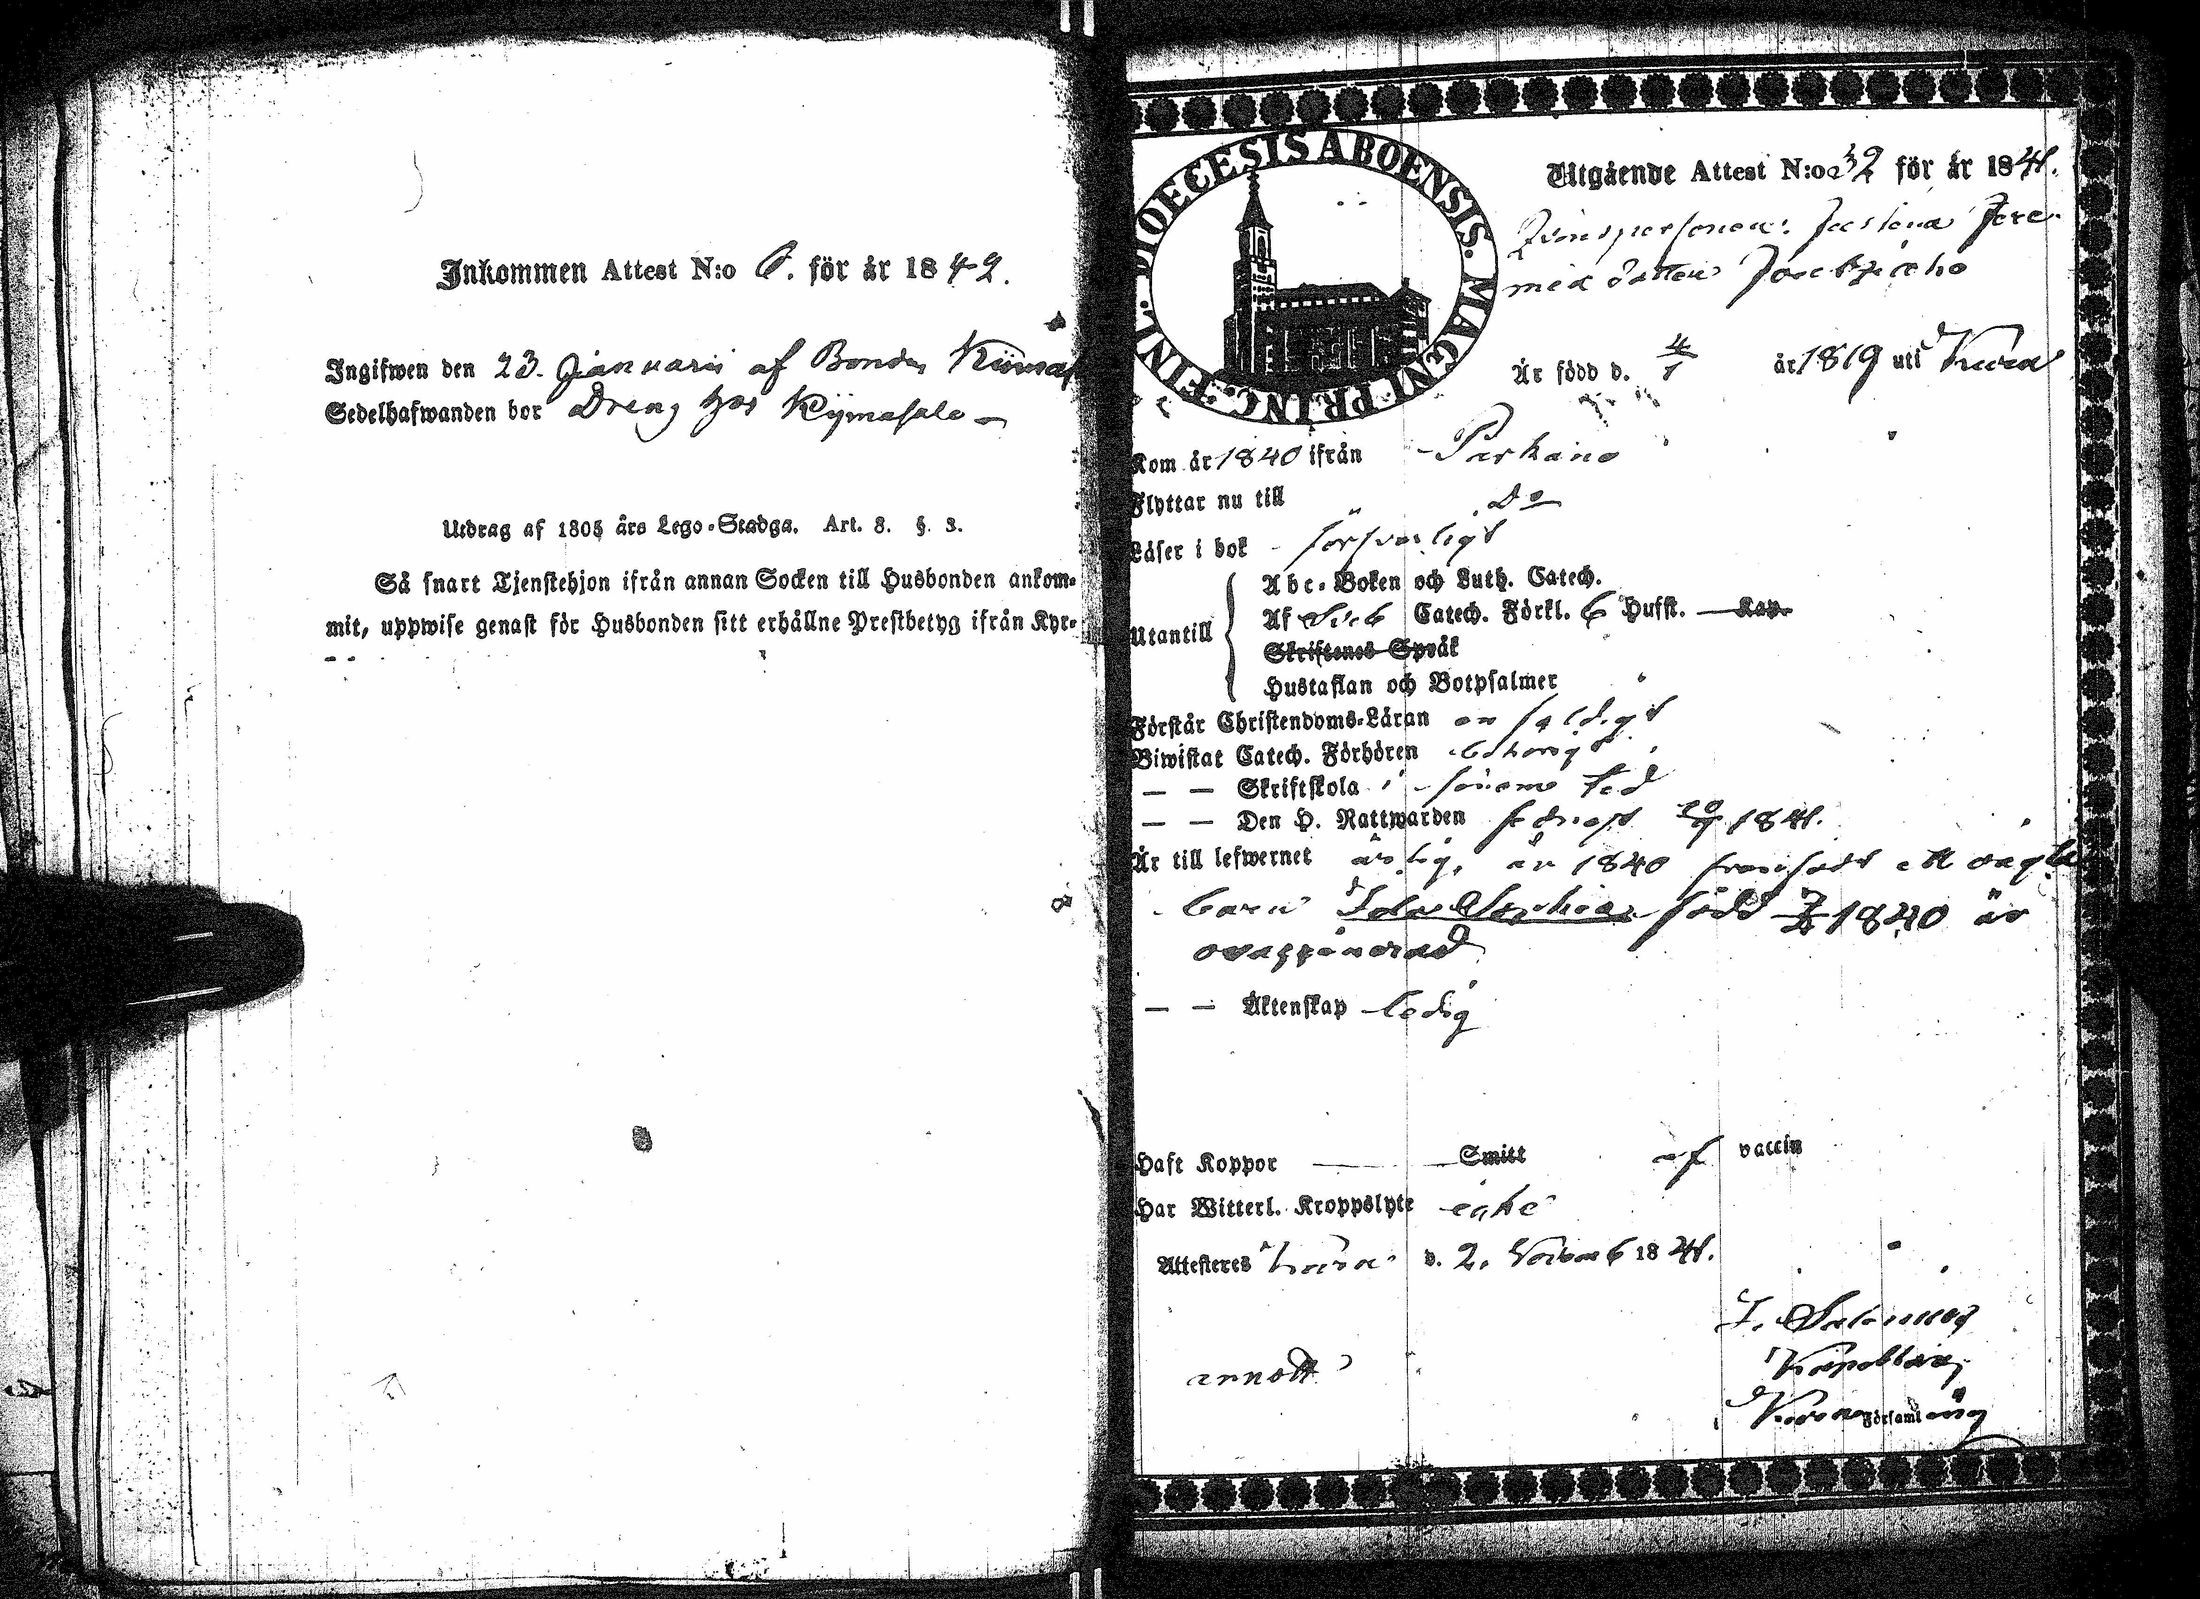 Inkommen Attest N:o 6. för år 1842.
Ingifwen den 23. Januarii af Bonden
Sedelhafwanden bor Dreng hos Kijmasalo
Utdrag af 1805 års Lego-Stadga. Art. 8. §. 3.
Så snart Tjenstehjon ifrån annan Socken till Husbonden ankom-
mit, uppwise genast för Husbonden sitt erhållne Prestbetyg ifrån Kyr-
DIOECESIS ABOENSIS. MAGNI PRINC. FINL.
Utgående Attest N:o 32 för år 1841.
Qvinspersonen Justina
med dottern
Är född d. 4/1 år 1819 uti
Kom år 1840 ifrån Parkano
Flyttar nu till Do
Läser i bok försvarligt
Utantill
Abc-Boken och Luth. Catech.
Af Sveb Catech. Förkl. 6 Hufst. Kap.
Skriftenes Språk
Hustaflan och Botpsalmer
Förstår Christendoms-Läran enfaldigt
Biwistat Catech. Förhören behörigt
— — Skriftskola i
— — Den H. Nattwarden sednast 1841.
Är till lefwernet ärlig, år 1840 framfödt ett oägta
barn Ida Sophia född 1840 är
ovaccinerad
— — Äktenskap ledig
Haft Koppor Smitt af vaccin
Har Witterl. Kroppslyte icke
Attesteres d. 2. Novemb 1841.
Kapellan
Församling